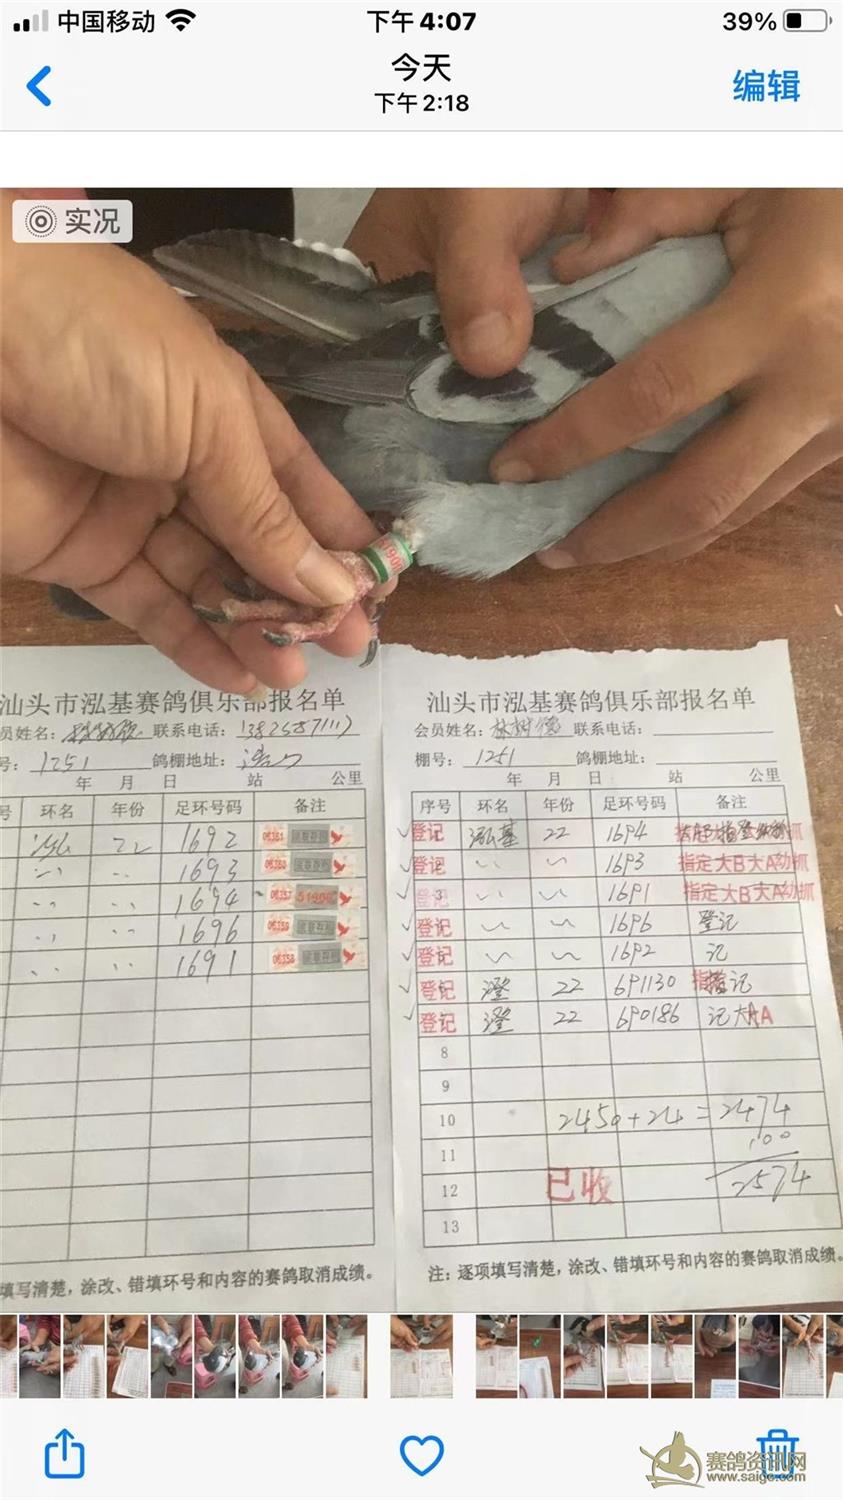 中国移动 下午4:07 39%
今天
下午2:18
编辑
实况
汕头市泓基赛鸽俱乐部报名单
会员姓名： 联系电话：
号：1251 鸽棚地址：
年 月 日 站 公里
号 环名 年份 足环号码 备注
泓 22 1692 06361
〃 〃 1693
〃 〃 1694 51900
〃 〃 1696 06359
〃 〃 1691 06358
填写清楚，涂改、错填环号和内容的赛鸽取消成绩。
汕头市泓基赛鸽俱乐部报名单
会员姓名：林树德 联系电话：
棚号：1251 鸽棚地址：
年 月 日 站 公里
序号 环名 年份 足环号码 备注
登记 泓基 22 1694
登记 〃 〃 1693 指定大B大A幼抓
3 〃 〃 1691 指定大B大A幼抓
登记 〃 〃 1696 登记
登记 〃 〃 1692 记
登记 澄 22 691130 记
登记 澄 22 690186 记大AA
8
9
10 2450+24=2474
11 100
12 已收 2574
13
注：逐项填写清楚，涂改、错填环号和内容的赛鸽取消成绩。
赛鸽资讯网
www.saige.com